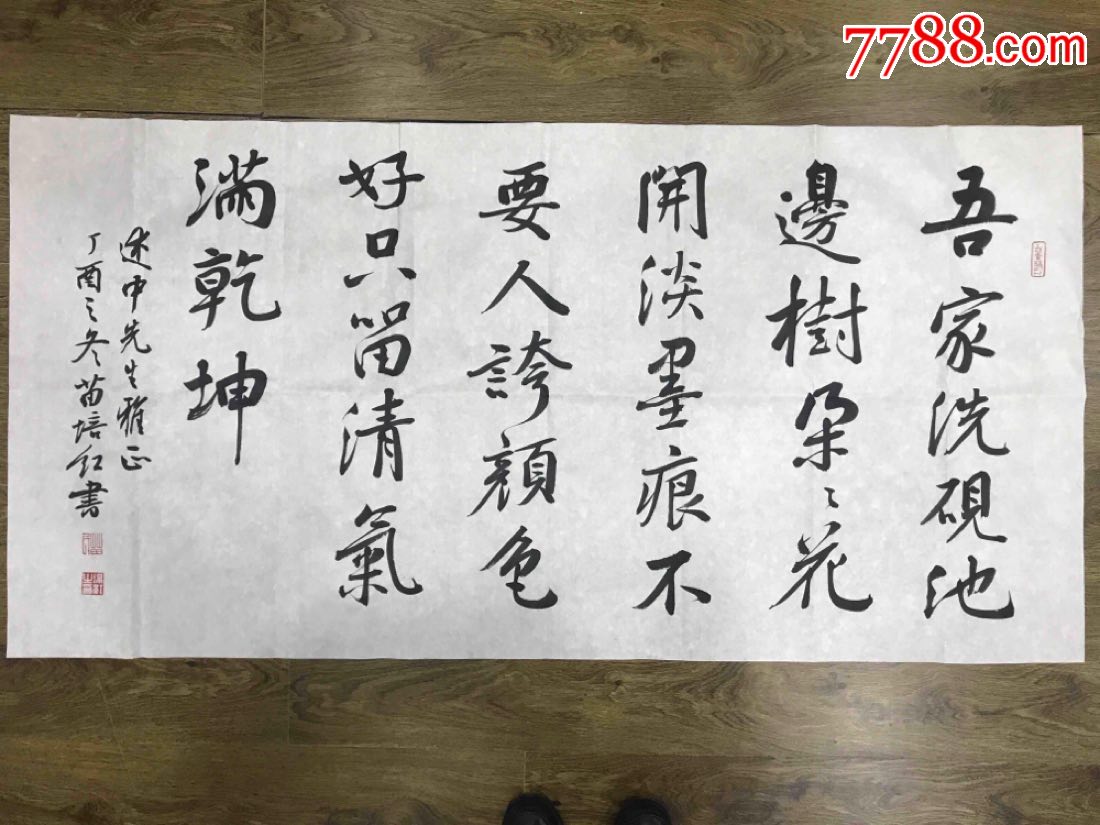 7788.com
吾家洗硯池
邊樹朵〻花
開淡墨痕不
要人誇顏色
好只留清氣
滿乾坤
述中先生雅正
丁酉之冬苗培红書